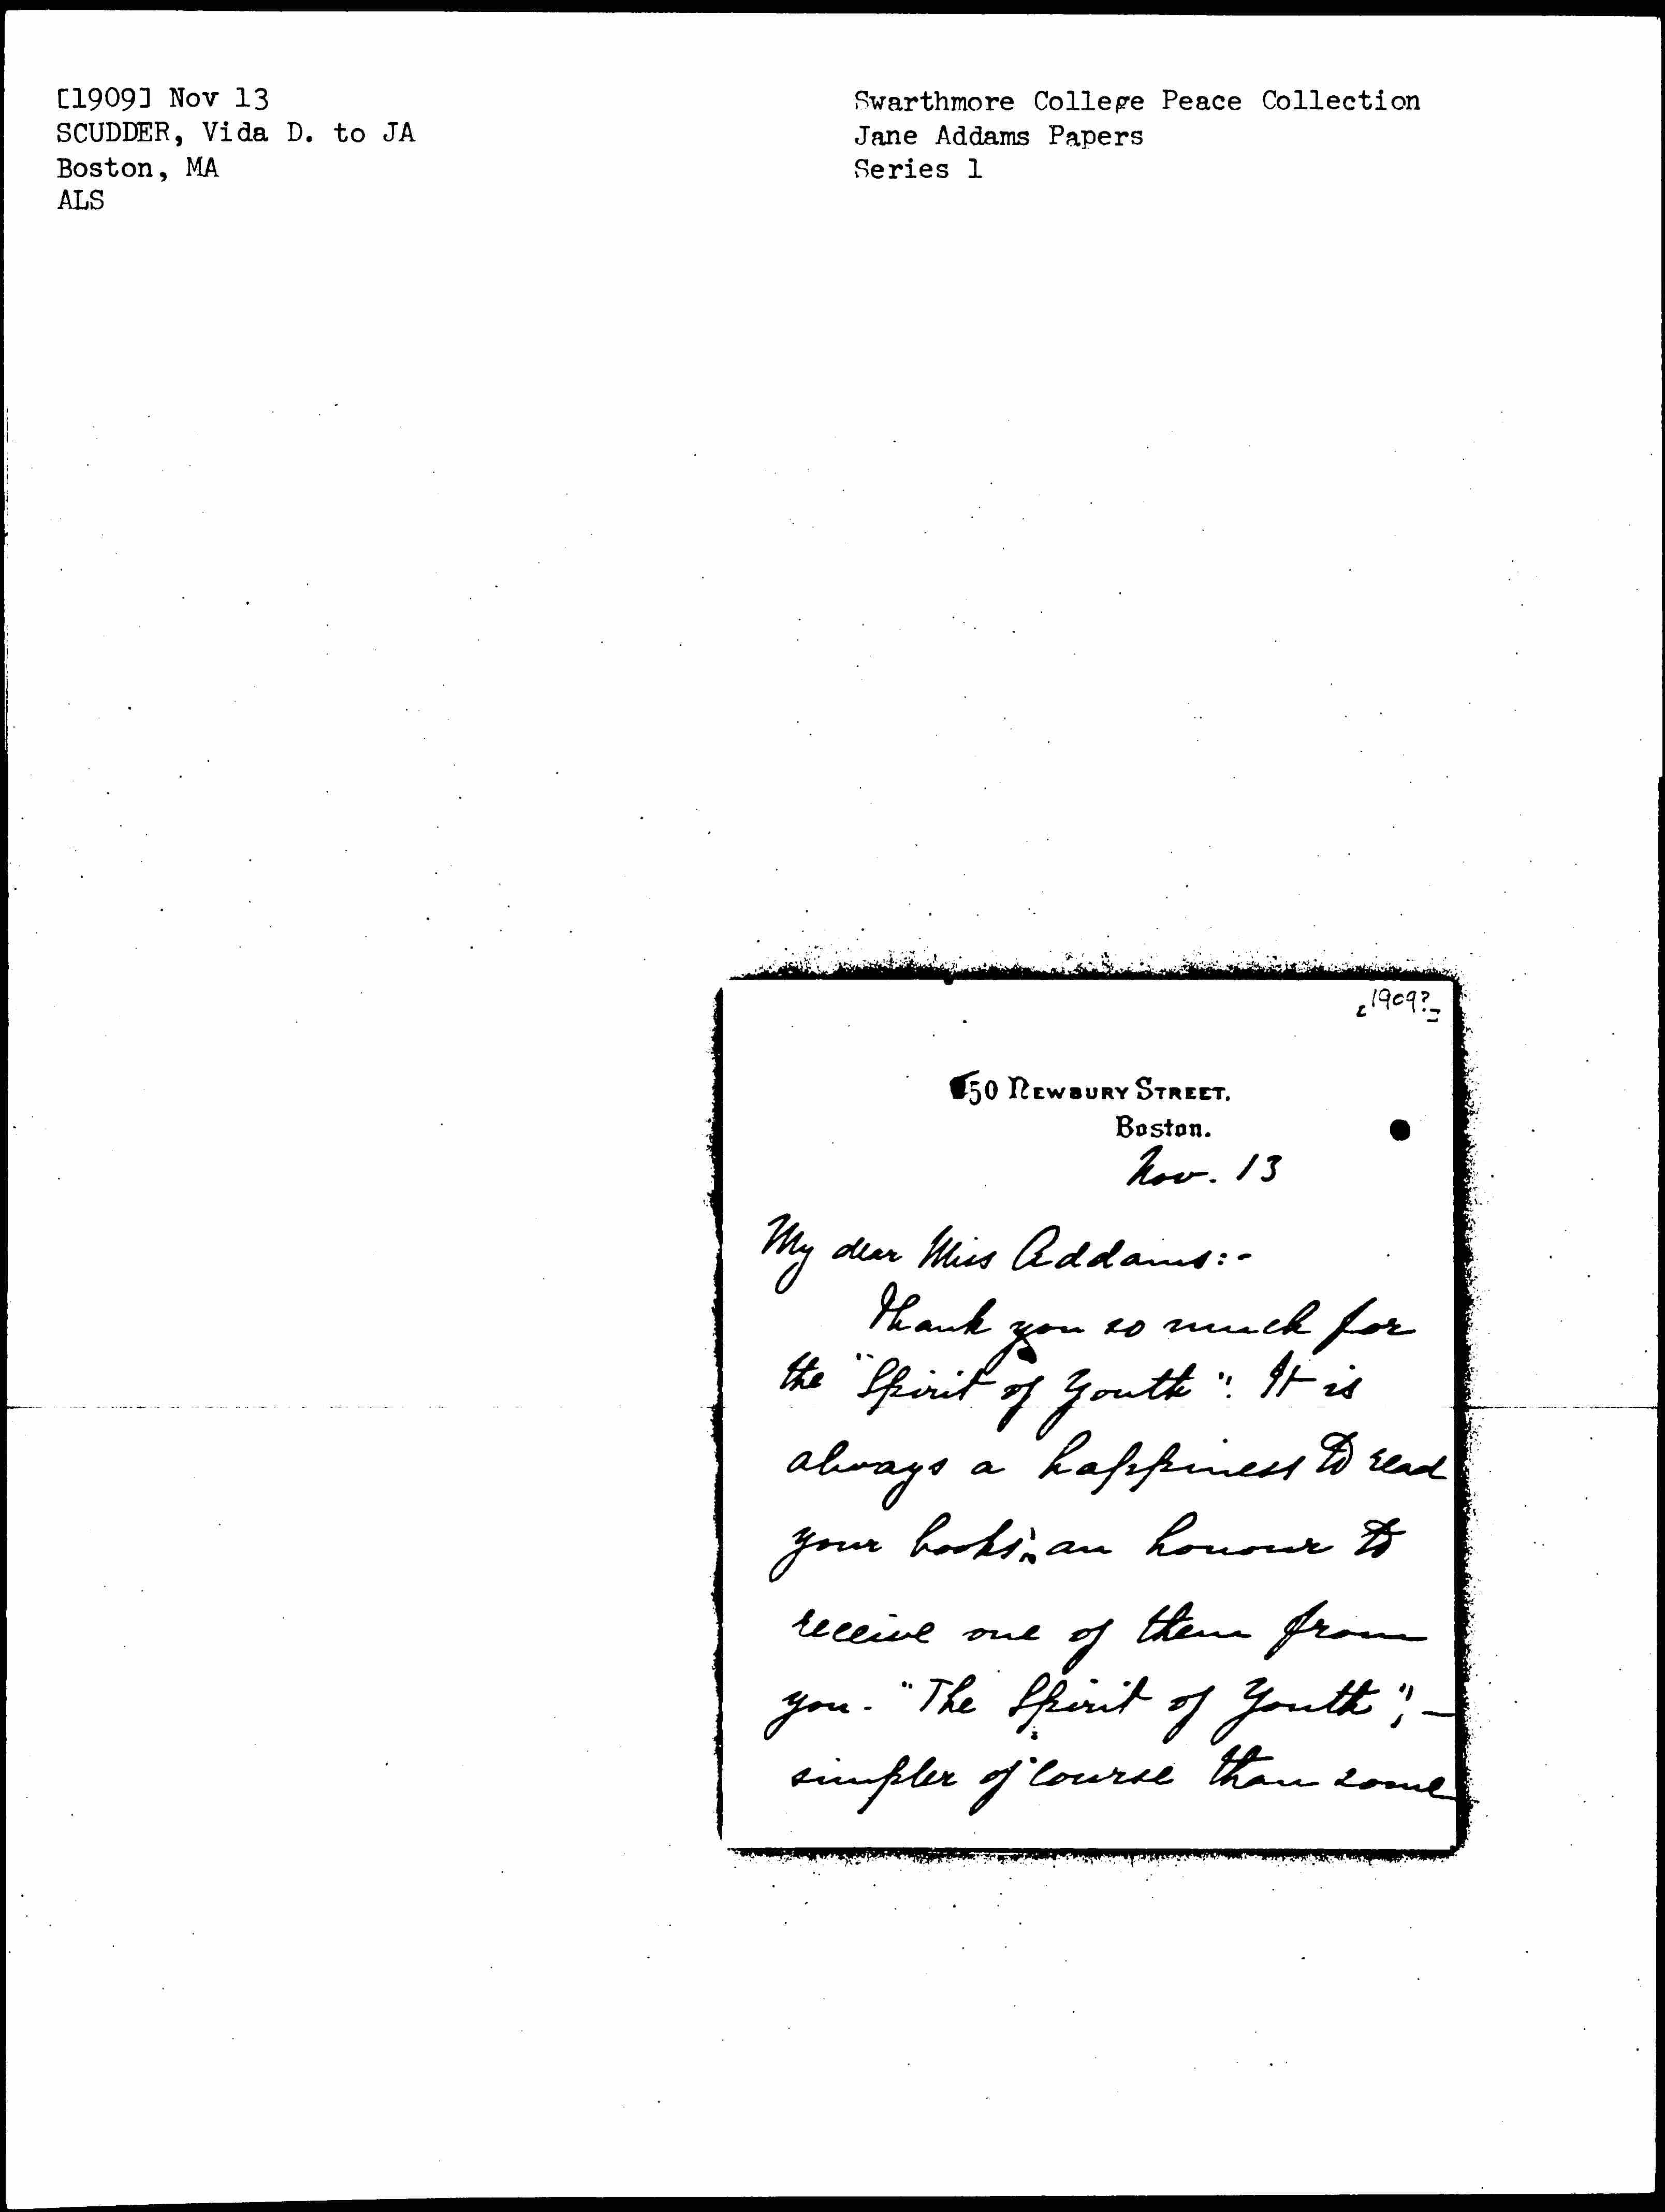 [1909] Nov 13
SCUDDER, Vida D. to JA
Boston, MA
ALS
Swarthmore College Peace Collection
Jane Addams Papers
Series 1
[1909?]
50 NEWBURY STREET.
Boston.
Nov. 13
My dear Miss Addams:-
Thank you so much for
the "Spirit of Youth". It is
always a happiness to read
your books; an honour to
receive one of them from
you. "The Spirit of Youth", —
simpler of course than some